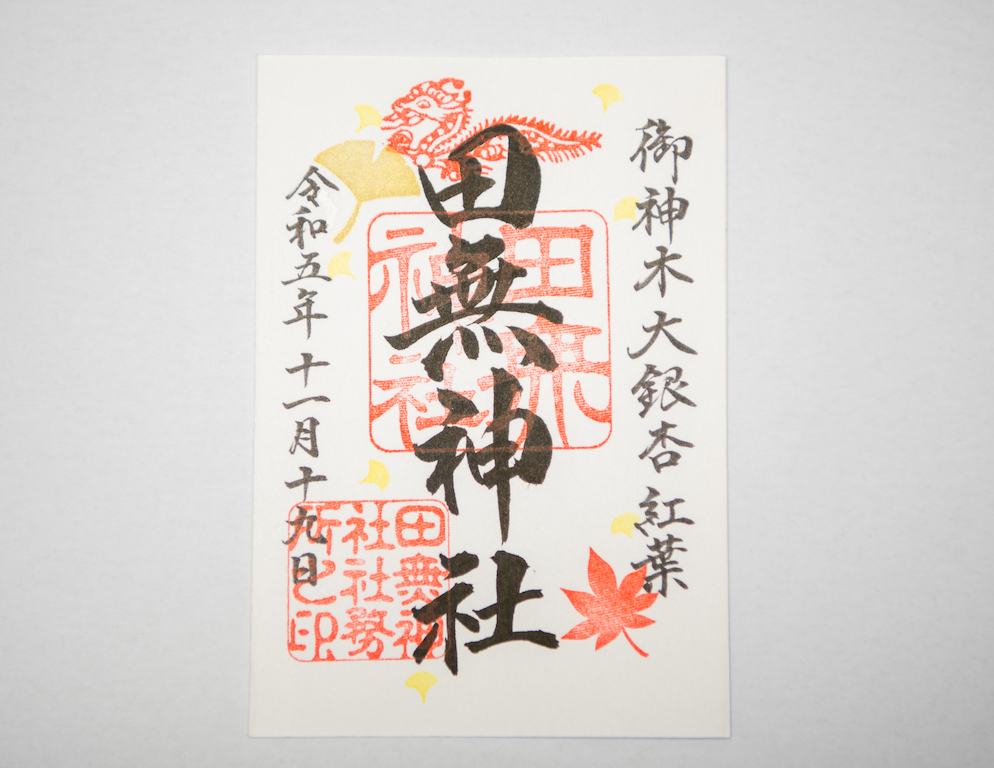 御神木大銀杏 紅葉
田無神社
令和五年十一月十九日
田無
神社
田無神
社社務
所之印